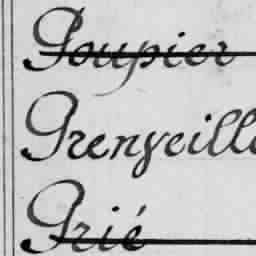 Poupier
Prenveille
Prié